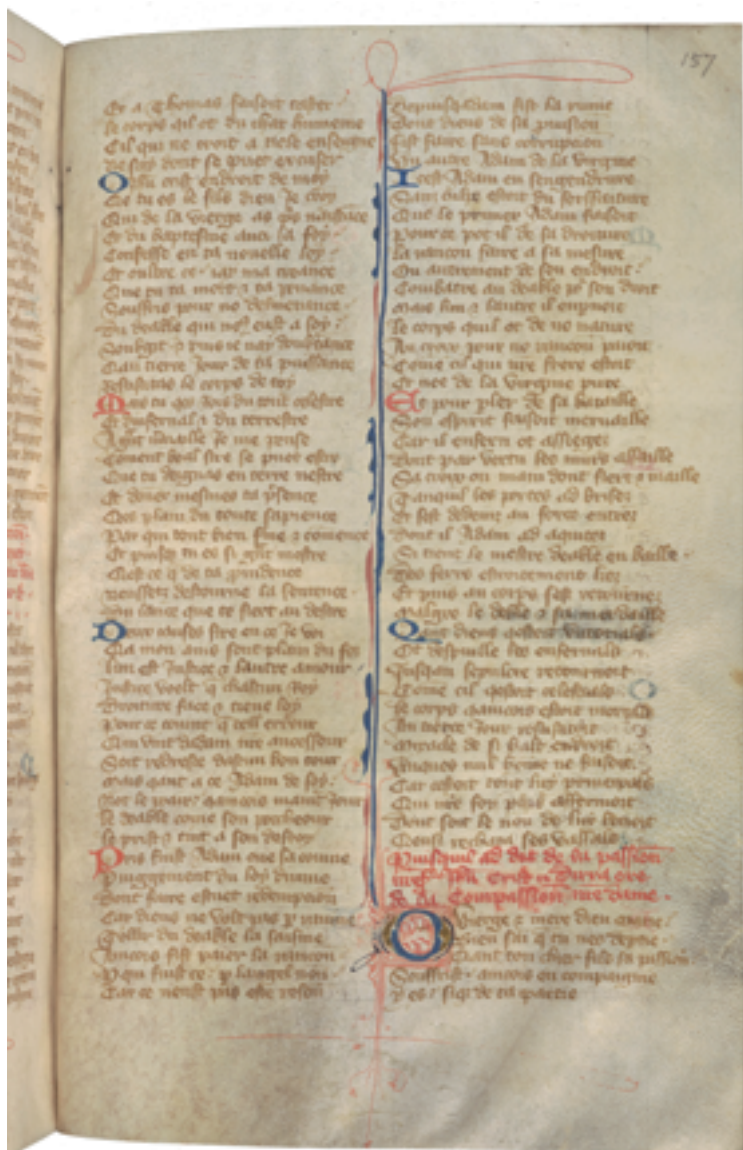 157
Et a Thomas faisoit taster
le corps qil ot du char humeine
Cil qui ne croit a tiele enseigne
ne say dont se puet excuser
crist endroit de moy
Qe tu es le fils dieu Je croy
Qui de la vierge as pris naissance
Et du baptesme auci la foy
Confesse en ta novelle loy
Et oultre ce ma creance
Que tu ta mort & ta penance
Souffris pour no delivrance
Du deable qui nous a soy
Soubgit & puis je nay doubtance
Qau tierce Jour de ta puissance
Resuscitas le corps de toy
Mais tu qui rois du tout celestre
Et denfernal & du terrestre
merveille Je me pense
Coment beal sire se puet estre
Que tu deignas en terre nestre
Et doner mesmes ta presence
plain du toute sapience
Par qui tout bien fine & comence
Et tu es si grant mestre
Nest ce q de ta prudence
destourne la sentence
Du lance que te fiert au destre
Deux causes sire en ce Je voi
Qa mon avis sont plain du foy
lun est Justice & lautre amour
Justice volt q chascun Roy
Droiture face & tiene loy
Pour ce q cell errour
Qui vint dadam nre ancessour
Soit redresce dascun bon tour
Mais qant a ce Adam de soy
Not le poair
le deable come son
le prist & tint a son desroy
Puis fuist Adam ove sa
Du Juggement du loy divine
Dont faire estuet redempcion
Car dieus ne volt pas
Tollir du deable la saisine
Ancois fist paier la rancon
P qui fuist ce p langel non
Car ce neust pas esté reson
Depuisqadam fist la ruine
Dont dieus de sa
Fist faire sans corrupcion
Un autre Adam de la virgine
Icest Adam en sengendrure
Sanz culpe estoit du forsfaiture
Que le primer Adam faisoit
Pour ce pot il de sa droiture
la rancon faire a sa mesure
Ou autrement de son endroit
Combatre au deable pr son droit
Mais lun & lautre il
le corps quil ot de no nature
Au croix pour no rancon paioit
Come cil qui nre frere estoit
Et nee de la virgine pure
Et pour pler de sa bataille
Son espirit faisoit mervaille
Car il enfern ot assieger
Dont par vertu les murs assaille
Sa croix en main dont fiert & maille
Tanquil les portes ad briser
Et sest dedeinz au force entrer
Dont il Adam ad aquiter
Si tient le mestre deable en baille
Des ferrs estroitement lier
Et puis au corps sest retourner
Malgre le deble &
Qant dieus
Ot despuille les enfernals
Jusqau sepulcre
Come cil qestoit celestials
le corps qancois estoit mortals
Au tierce Jour resuscitoit
Miracle de si halt endroit
Unques nul home ne faisoit
Car cestoit tout ly principals
Qui nre foy plus affermoit
Dont soit le nou de luy benoit
Qensi ses vassals
Puisquil ad dit de la passion
Crist dirra ore
de la Compassion nre dame
O vierge & mere dieu
Bien sai q tu
Qant ton cher fils sa passion
Souffrist ancois en compaignie
y es siqe de ta partie